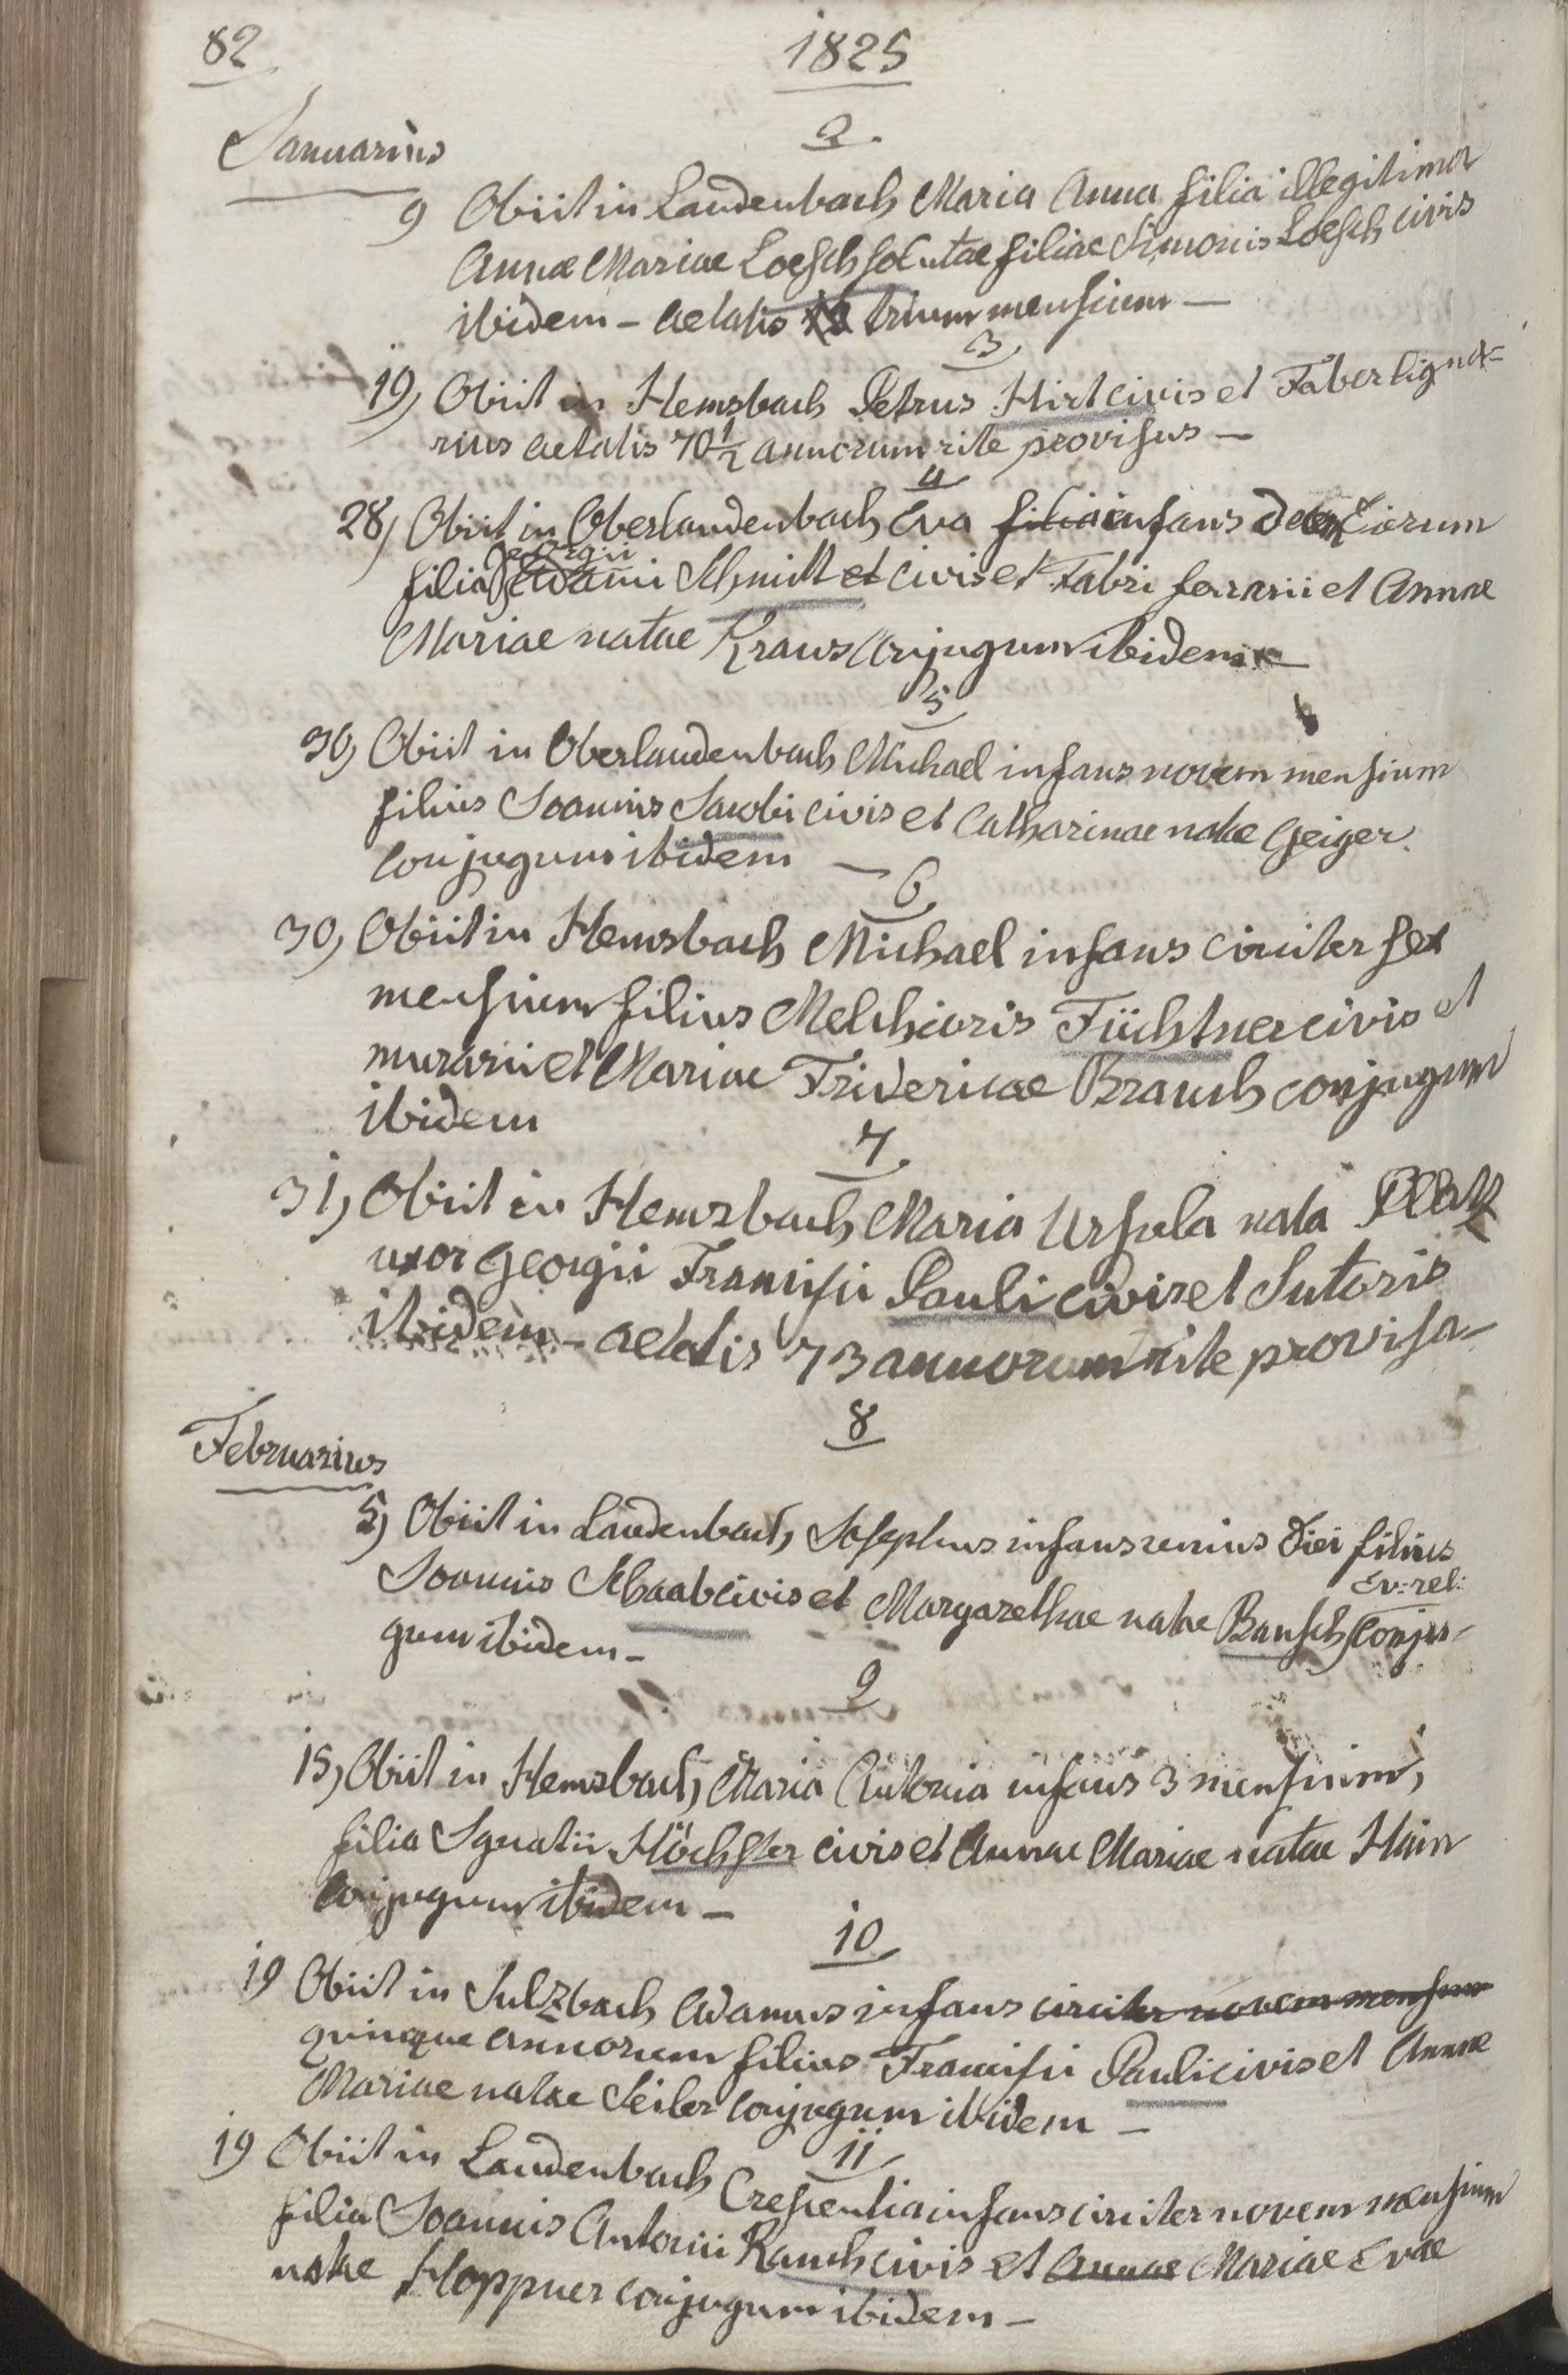 82
1825
Januarius
2.
9 Obiit in Laudenbach Maria Anna filia illegitima
Annae Mariae Loesch solutae filiae Simonis Loesch civis
ibidem – aetatis trium mensium –
3,
19, Obiit in Hemsbach Petrus Hirt civis et Faber ligna=
rius aetatis 70 1/2 annorum rite provisus –
4
28, Obiit in Oberlaudenbach Eva filia infans dierum
Georgii
filia Adami Schmitt et civis et Fabri ferrarii et Annae
Mariae natae Kraus Conjugum ibidem –
5,
30, Obiit in Oberlaudenbach Michael infans novem mensium
filius Joannis Jacobi civis et Catharinae natae Geiger.
Conjugum ibidem –
6,
30, Obiit in Hemsbach Michael infans circiter sex
mensium filius Melchioris Füchtner civis et
murarii et Mariae Fridericae Brauch conjugum
ibidem
7,
31, Obiit in Hemsbach Maria Ursula nata Platz
uxor Georgii Francisci Pauli civis et Sutoris
ibidem – aetatis 73 annorum rite provisa –
8
Februarius
5, Obiit in Laudenbach, Josephus infans unius diei filius
Ev: rel:
Joannis Schaab civis et Margarethae natae Bausch Conju-
gum ibidem –
9
15, Obiit in Hemsbach, Maria Antonia infans 3 mensium,
filia Ignatii Höchster civis et Annae Mariae natae Hain
Conjugum ibidem –
10
19 Obiit in Sulzbach Adamus infans circiter novem mensium
quinque annorum filius Francisci Pauli civis et Annae
Mariae natae Seiler Conjugum ibidem –
11,
19 Obiit in Laudenbach Crescentia infans circiter novem mensium
filia Joannis Antonii Rauch civis et Annae Mariae Evae
natae Hoppner Conjugum ibidem –